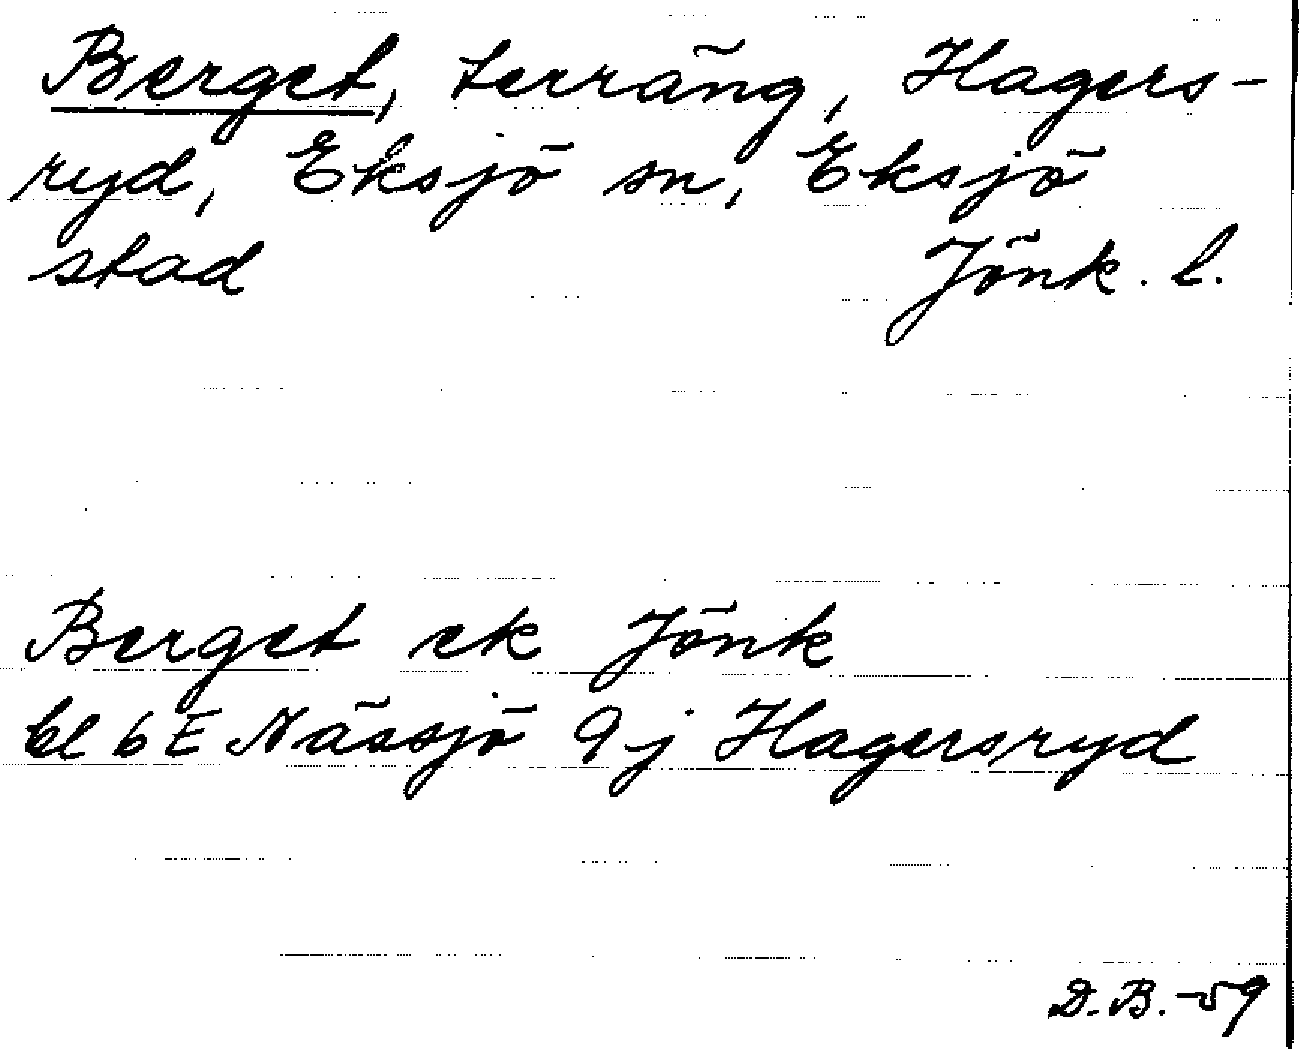 Berget, terräng, Hagers-
ryd, Eksjö sn, Eksjö
stad Jönk. l.
Berget ek Jönk
bl 6E Nässjö 9j Hagersryd
D.B. -59